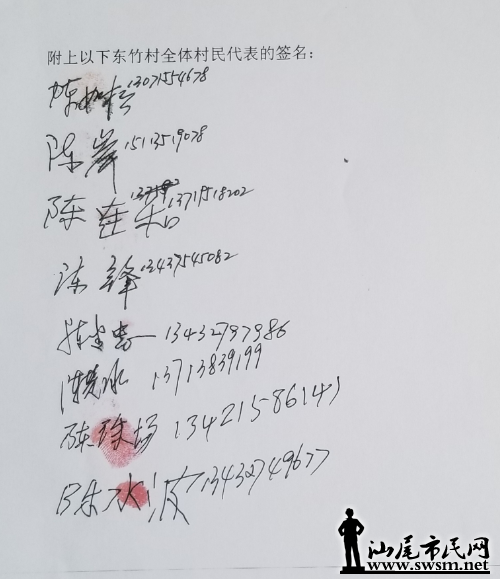 附上以下东竹村全体村民代表的签名：
陈 13071554678
陈 15113519078
陈连 13719518202
陈锋 13437545082
陈 13432797986
陈 水 13713839199
陈 场 13421586141
陈水波 13432749677
汕尾市民网
www.swsm.net